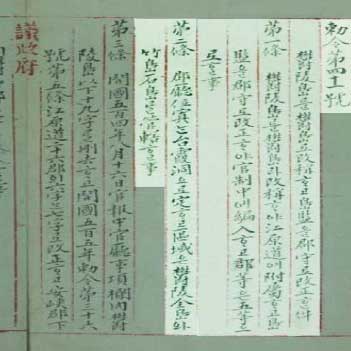 勅令第四十一號
鬱陵島를鬱島로改稱ᄒᆞ고島監을郡守로改正ᄒᆞᆫ件
第一條 鬱陵島를鬱島라改稱ᄒᆞ야江原道에附屬ᄒᆞ고島
監을郡守로改正ᄒᆞ야官制中에編入ᄒᆞ고郡等은五等으
로ᄒᆞᆯ事
第二條 郡廳位寘ᄂᆞᆫ台霞洞으로定ᄒᆞ고區域은鬱陵全島와
竹島石島ᄅᆞᆯ管轄ᄒᆞᆯ事
第三條 開國五百四年八月十六日官報中官廳事項欄內鬱
陵島以下十九字ᄅᆞᆯ刪去ᄒᆞ고開國五百五年勅令第三十六
號第五條江原道二十六郡의六字ᄂᆞᆫ七字로改正ᄒᆞ고安峽郡下
議政府